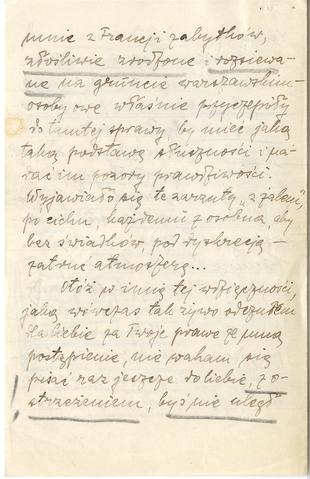 mnie z Francji zabytków,
złośliwie zrodzone i rozsiewa-
ne na gruncie warszawskim
osoby owe właśnie przyczepiły
do tamtej sprawy by mieć jaką
taką podstawę słuszności i na-
dać im pozory prawdziwości.
Wyjawiało się te zarzuty „z żalem",
po cichu, każdemu z osobna, aby
bez świadków, pod dyskrecją –
zatruć atmosferę...
Otóż w imię tej wdzięczności,
jaką wówczas tak żywo odczułem
dla Ciebie za Twoje prawe ze mną
postąpienie, nie waham się
pisać raz jeszcze do Ciebie, z o-
strzeżeniem, byś nie uległ